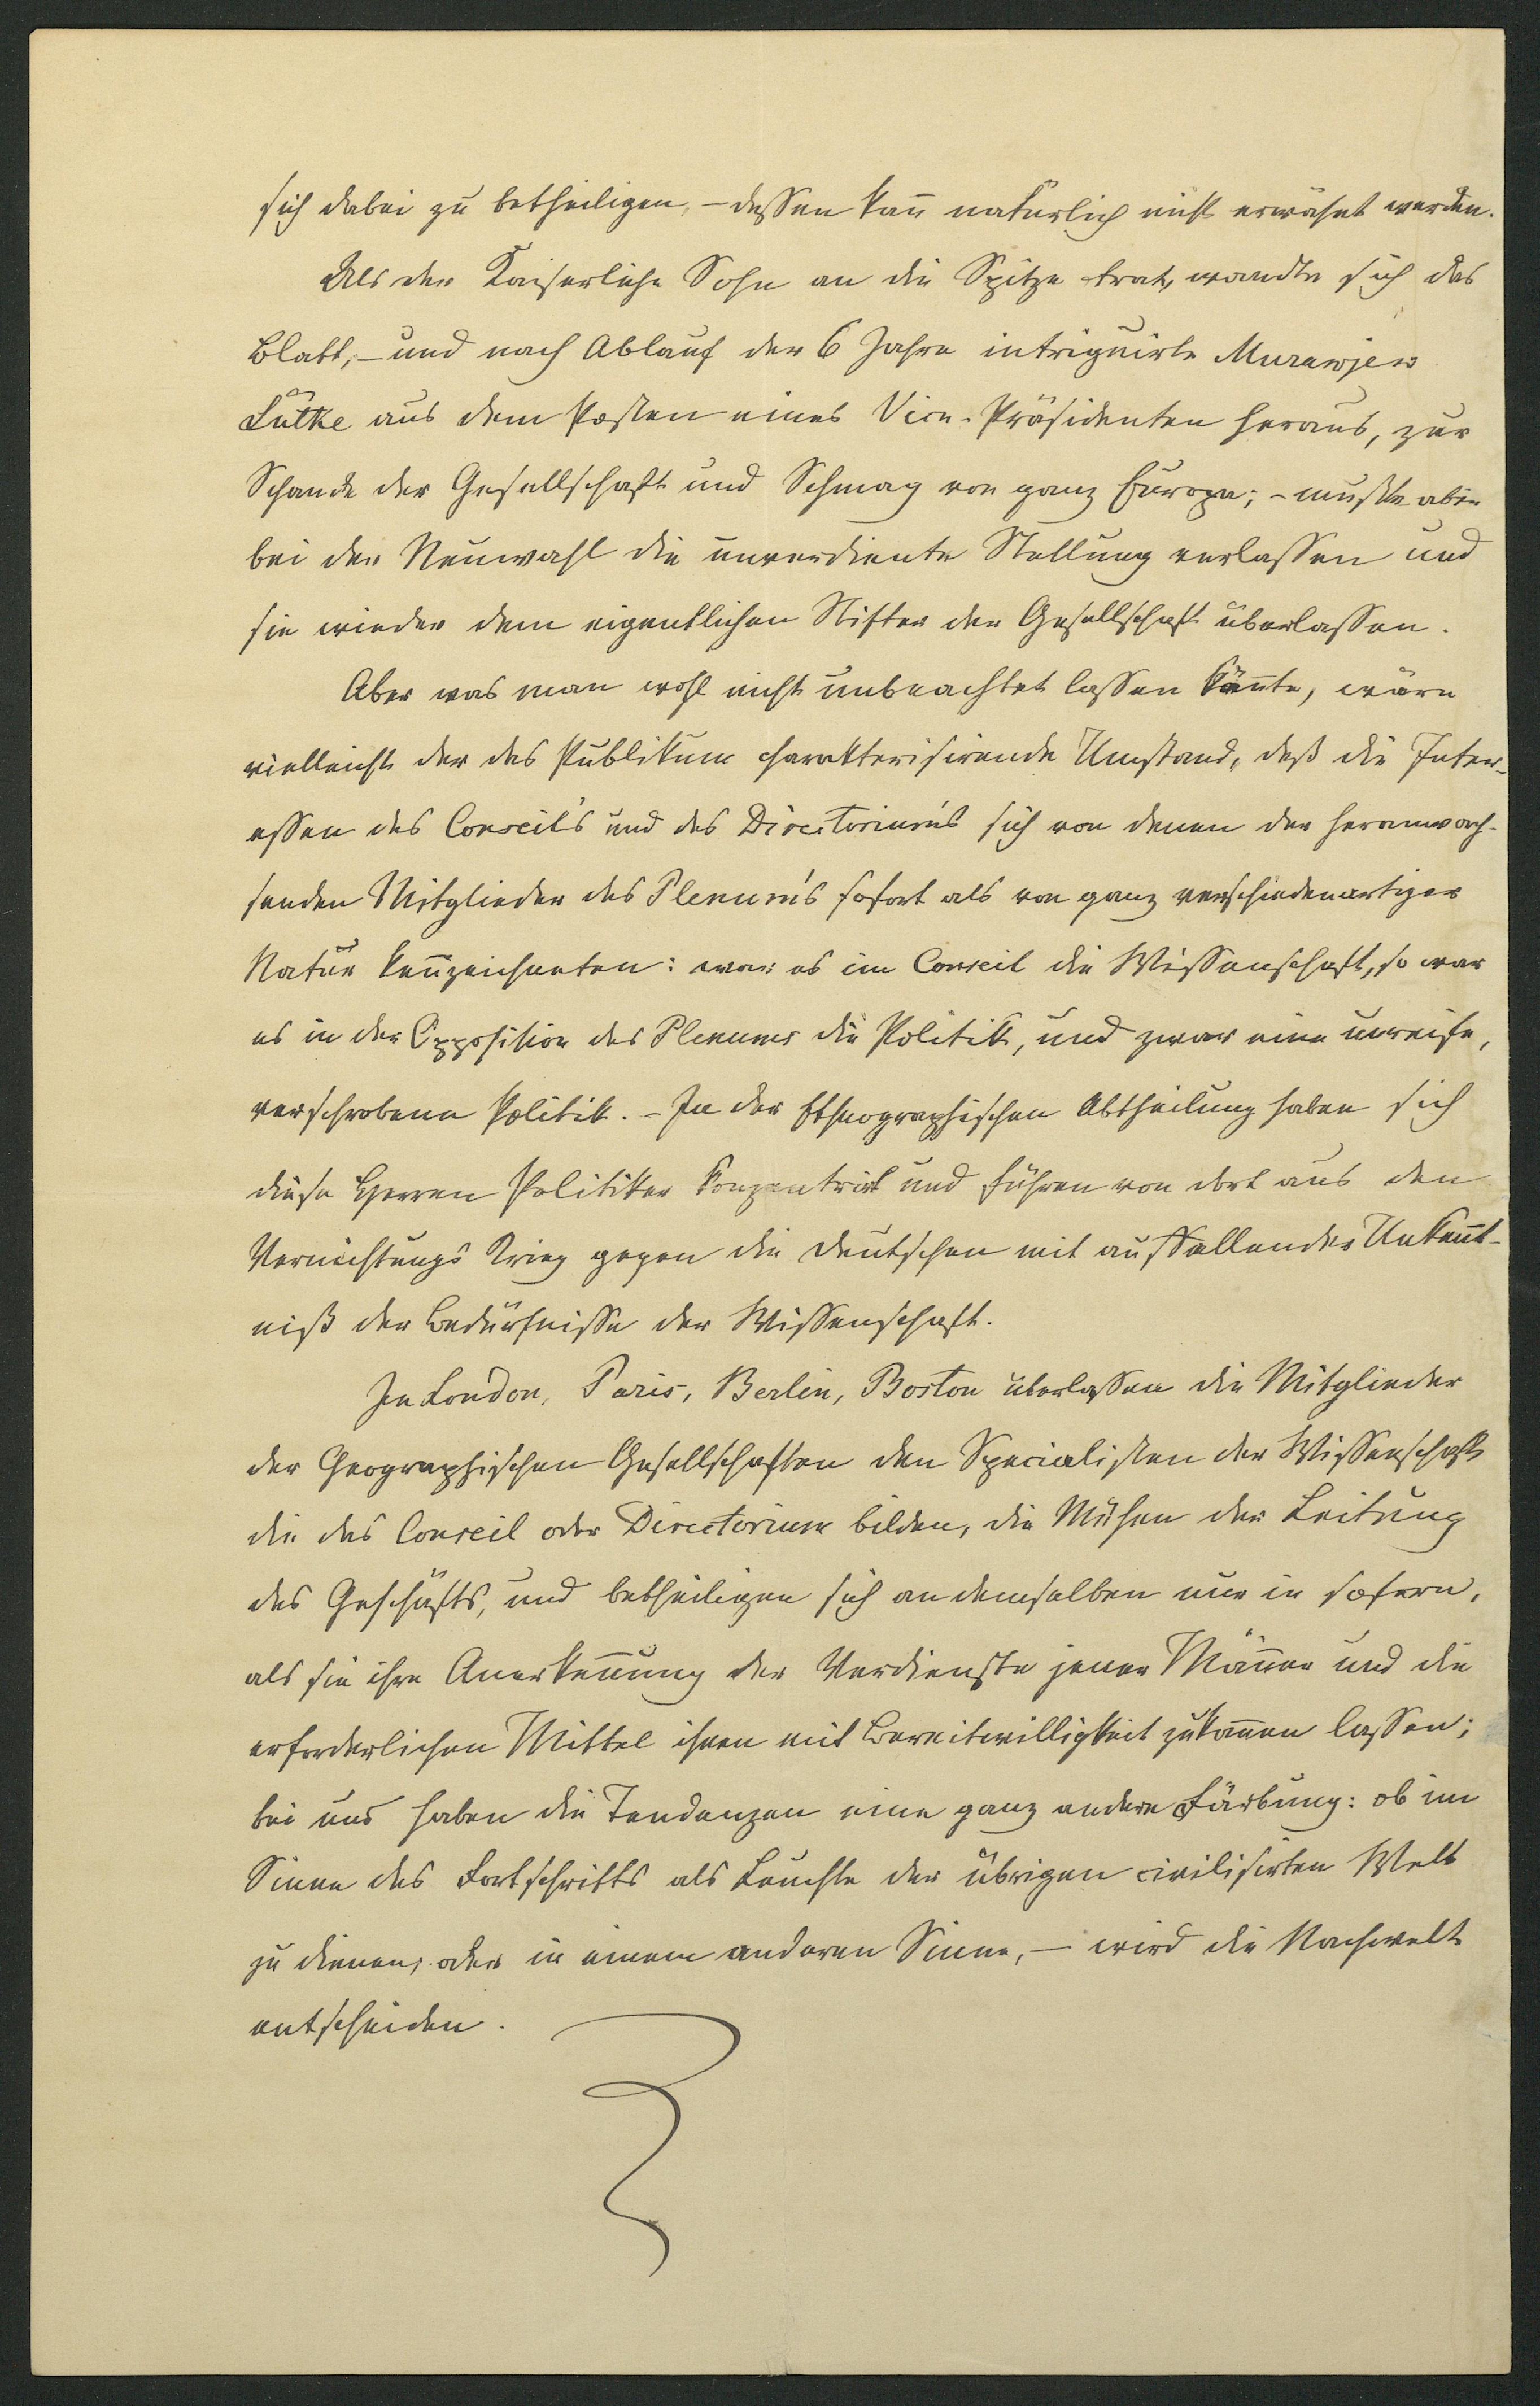 sich dabei zu betheiligen, – dessen kann natürlich nicht erwähnt werden.
Als der Kaiserliche Sohn an die Spitze trat, wandte sich das
Blatt, – und nach Ablauf der 6 Jahre intriguirte Murawjew
Lütke aus dem Posten eines Vice-Präsidenten heraus, zur
Schande der Gesellschaft und Schmach von ganz Europa; – mußte aber
bei der Neuwahl die unverdiente Stellung verlassen und
sie wieder dem eigentlichen Stifter der Gesellschaft überlassen.
Aber was man wohl nicht unbeachtet lassen könnte, wäre
vielleicht der das Publikum charakterisirende Umstand, daß die Inter-
essen des Conseil's und des Directorium's sich von denen der heranwach-
senden Mitglieder des Plenum's sofort als von ganz verschiedenartiger
Natur kennzeichneten: war es im Conseil die Wissenschaft, so war
es in der Opposition des Plenums die Politik, und zwar eine unreife,
verschrobene Politik. – In der Ethnographischen Abtheilung haben sich
diese Herren Politiker konzentrirt und führen von dort aus den
Vernichtungs Krieg gegen die Deutschen mit auffallender Unkennt-
niß der Bedürfnisse der Wissenschaft.
In London, Paris, Berlin, Boston überlassen die Mitglieder
der Geographischen Gesellschaften den Specialisten der Wissenschaft
die das Conseil oder Directorium bilden, die Mühen der Leitung
des Geschäfts, und betheiligen sich an demselben nur in sofern,
als sie ihre Anerkennung der Verdienste jener Männer und die
erforderlichen Mittel ihnen mit Bereitwilligkeit zukommen lassen;
bei uns haben die Tendenzen eine ganz andere Färbung: ob im
Sinne des Fortschritts als Leuchte der übrigen civilisirten Welt
zu dienen, oder in einem anderen Sinne, – wird die Nachwelt
entscheiden.